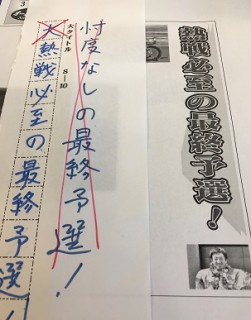 熱戦必至の最終予選!
忖度なしの最終予選!
大タイトル 8~10
大熱戦必至の最終予選!